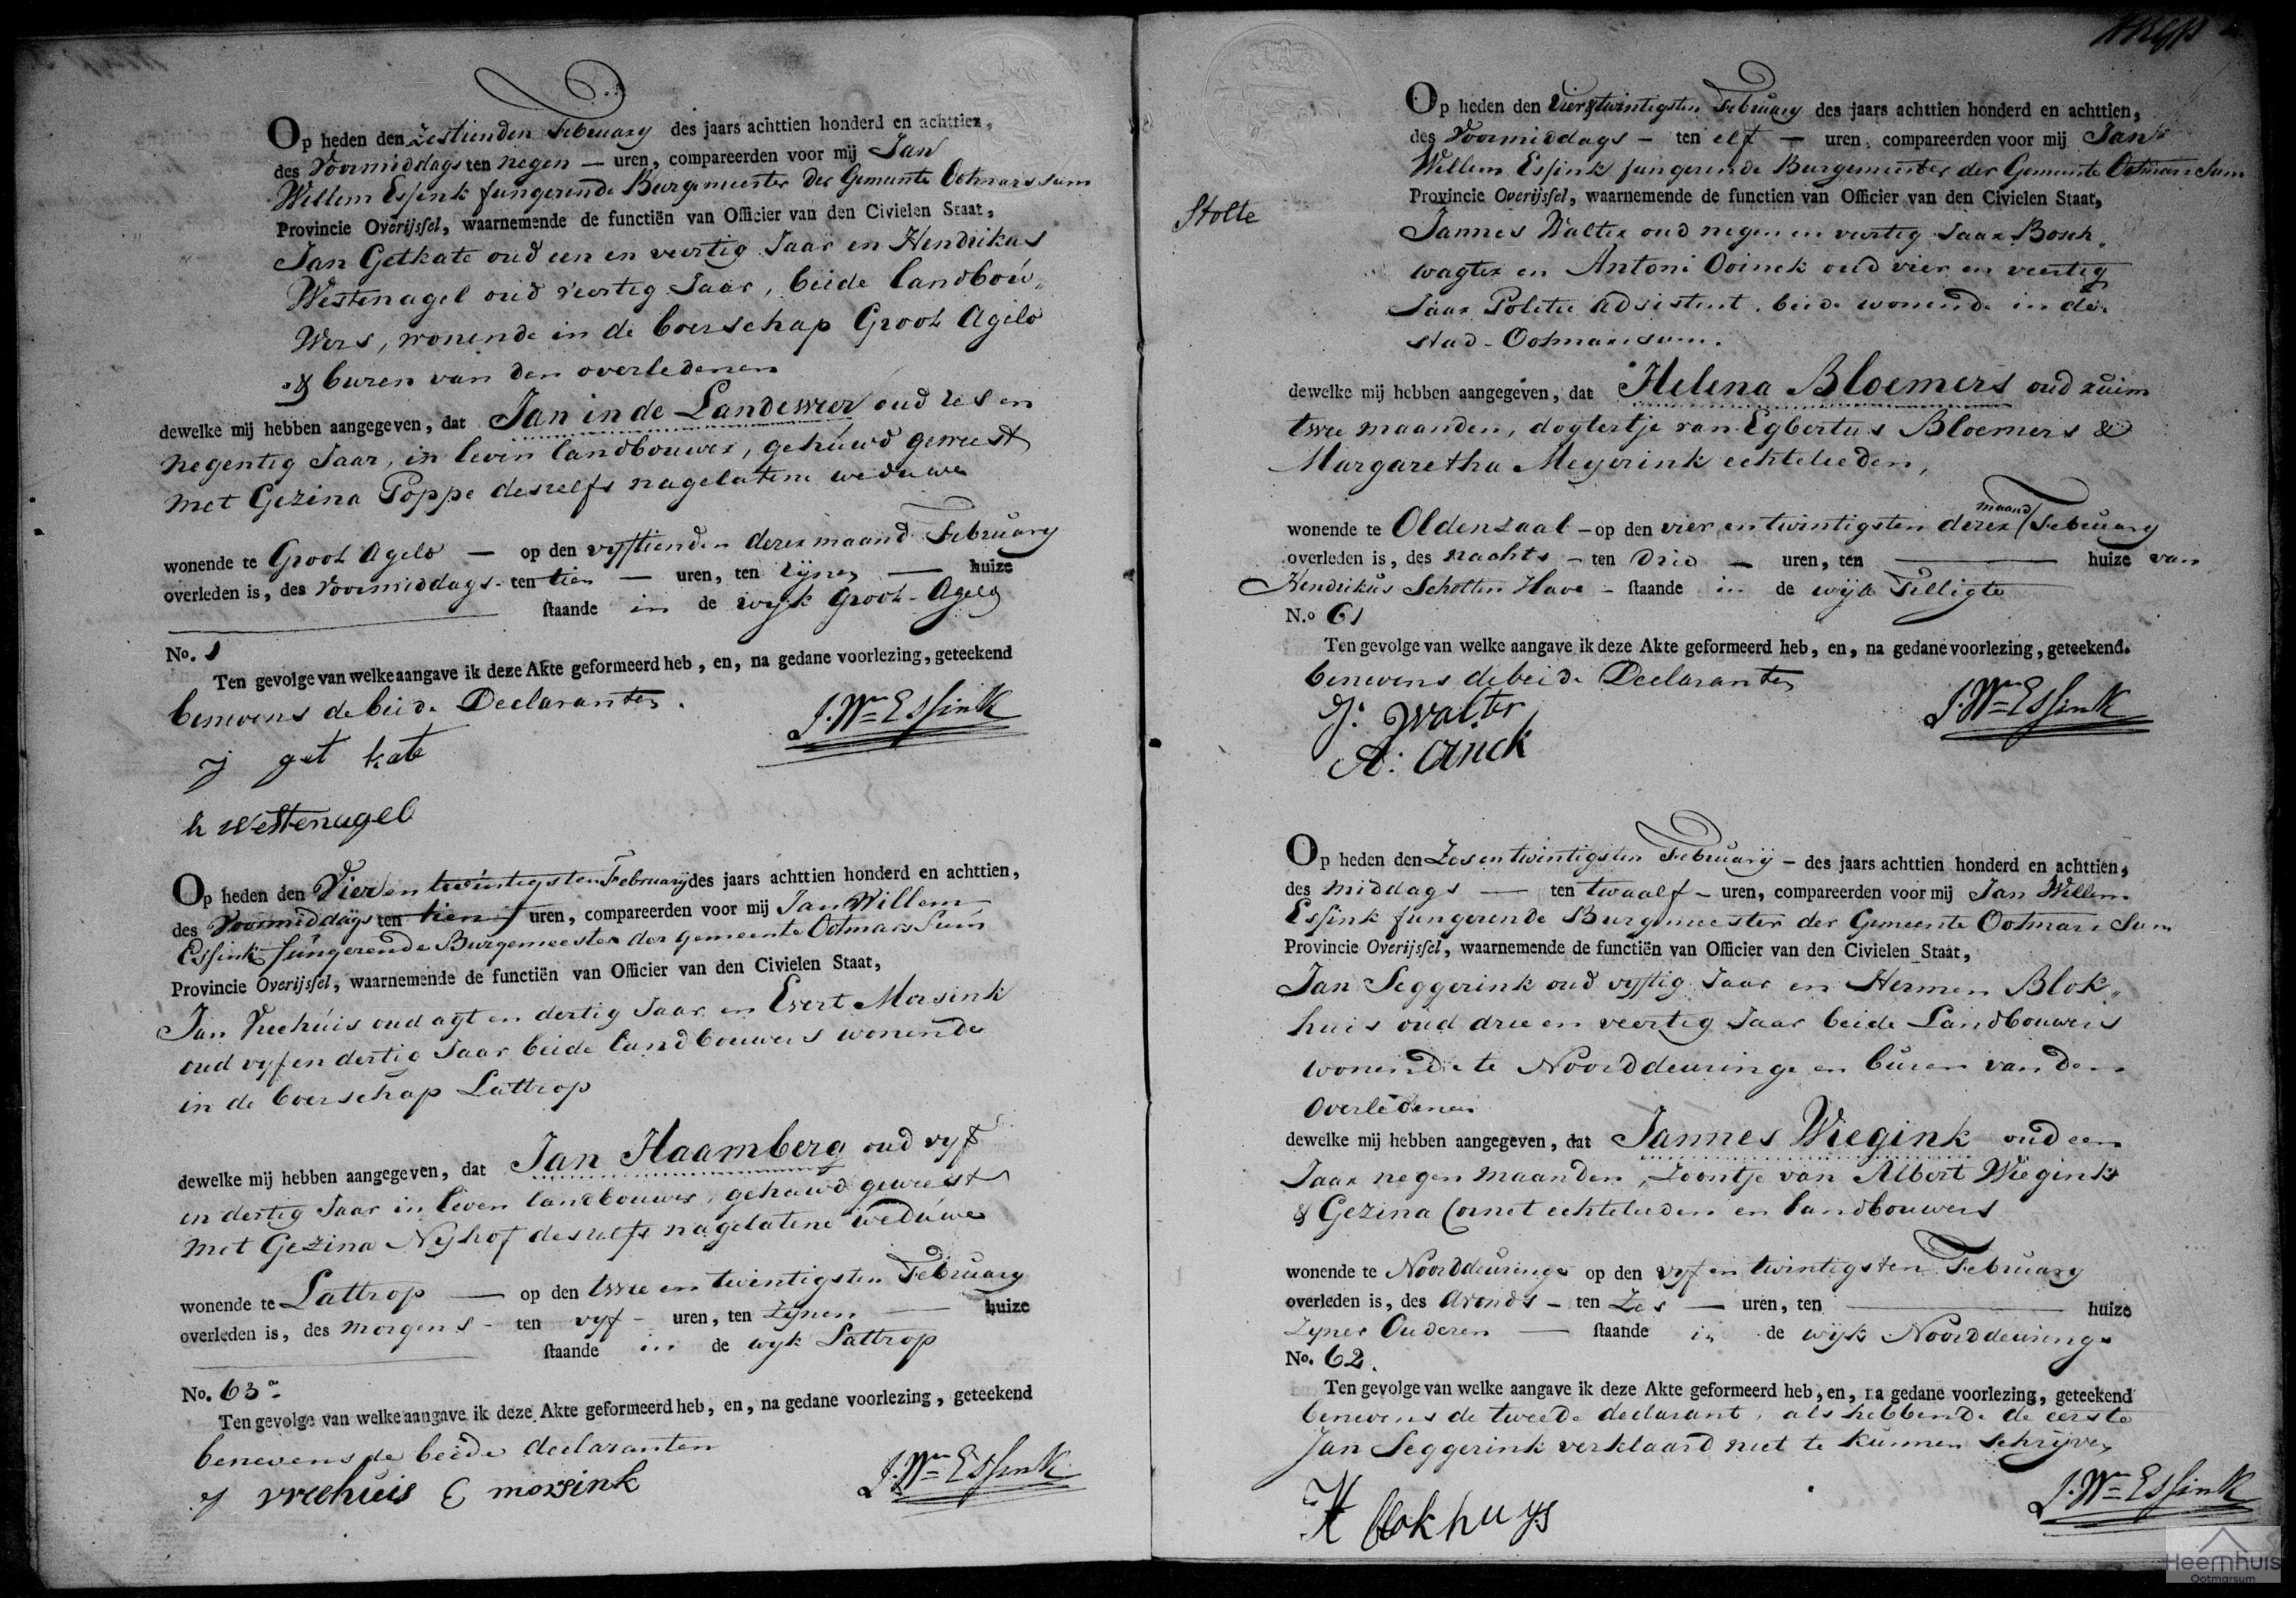 Op heden den Zestienden February des jaars achttien honderd en achttien,
des Voormiddags ten negen — uren, compareerden voor mij Jan
Willem Essink fungerende Burgemeester der Gemeente Ootmarssum
Provincie Overijssel, waarnemende de functiën van Officier van den Civielen Staat,
Jan Getkate oud een en veertig Jaar en Hendrikus
Westenagel oud veertig Jaar, beide landbou„
wers, wonende in de boerschap Groot Agelo
& buren van den overledenen
dewelke mij hebben aangegeven, dat Jan in de Landewer oud zes en
negentig Jaar, in leven landbouwer, gehuwd geweest
met Gezina Poppe deszelfs nagelatene weduwe
wonende te Groot Agelo — op den vyftienden dezer maand February
overleden is, des voormiddags - ten tien — uren, ten zijnen — huize
staande in de wyk Groot-Agelo
No.
Ten gevolge van welke aangave ik deze Akte geformeerd heb, en, na gedane voorlezing, geteekend
benevens de beide Declaranten.
J.Wm Essink
j get kate
h westenagel
Op heden den Vier en twintigsten February des jaars achttien honderd en achttien,
des Voormiddags ten tien uren, compareerden voor mij Jan Willem
Essink fungerende Burgemeester der Gemeente Ootmarssum
Provincie Overijssel, waarnemende de functiën van Officier van den Civielen Staat,
Jan Vreehuis oud agt en dertig Jaar en Evert Morsink
oud vyf en dertig Jaar beide landbouwers wonende
in de boerschap Lattrop
dewelke mij hebben aangegeven, dat Jan Haamberg oud vyf
en dertig Jaar in leven landbouwer, gehuwd geweest
met Gezina Nyhof deszelfs nagelatene weduwe
wonende te Lattrop — op den twee en twintigsten February
overleden is, des morgens - ten vyf - uren, ten Zynen — huize
staande in de wyk Lattrop
No. 63
Ten gevolge van welke aangave ik deze Akte geformeerd heb, en, na gedane voorlezing, geteekend
benevens de beide declaranten
J.Wm Essink
j vreehuis E morsink
Stolte
Op heden den Vier & twintigsten February des jaars achttien honderd en achttien,
des Voormiddags — ten elf — uren, compareerden voor mij Jan
Willem Essink fungerende Burgemeester der Gemeente Ootmarssum
Provincie Overijssel, waarnemende de functien van Officier van den Civielen Staat,
Jannes Walter oud negen en veertig Jaar Bosch„
wagter en Antoni Ooinck oud vier en veertig
Jaar Politie Adsistent, beide wonende in de
stad Ootmarssum.
dewelke mij hebben aangegeven, dat Helena Bloemers oud ruim
twee maanden, dogtertje van Egbertus Bloemers &
Margaretha Meyerink echtelieden,
wonende te Oldenzaal - op den vier en twintigsten dezer maand February
overleden is, des nachts - ten drie — uren, ten — huize van
Hendrikus Scholten Have - staande in de wijk Tilligte
N.o 61
Ten gevolge van welke aangave ik deze Akte geformeerd heb, en, na gedane voorlezing, geteekend.
benevens de beide Declaranten
J.Wm Essink
J: Walter
A: Oinck
Op heden den Zes en twintigsten February - des jaars achttien honderd en achttien,
des middags — ten twaalf - uren, compareerden voor mij Jan Willem
Essink fungerende Burgemeester der Gemeente Ootmarssum
Provincie Overijssel, waarnemende de functiën van Officier van den Civielen Staat,
Jan Seggerink oud vyftig Jaar en Hermen Blok„
huis oud drie en veertig Jaar beide Landbouwers
wonende te Noorddeuringe en buren van den
overledenen
dewelke mij hebben aangegeven, dat Jannes Wiegink oud een
Jaar negen maanden, Zoontje van Albert Wiegink
& Gezina Cornet echtelieden en landbouwers
wonende te Noorddeuringe op den vyf en twintigsten February
overleden is, des avonds - ten Zes — uren, ten — huize
Zyner Ouderen — staande in de wijk Noorddeuringe
No. 62.
Ten gevolge van welke aangave ik deze Akte geformeerd heb, en, na gedane voorlezing, geteekend
benevens de tweede declarant, als hebbende de eerste
Jan Seggerink verklaard niet te kunnen schryven
J.Wm Essink
H blokhuys
Heemhuis
Ootmarsum